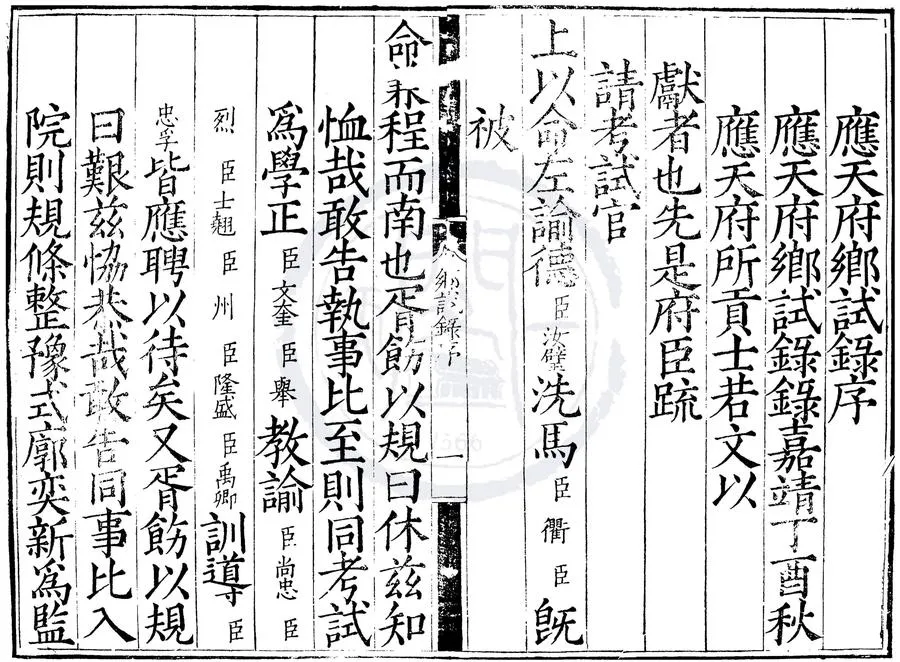 應天府鄉試錄序
應天府鄉試錄錄嘉靖丁酉秋
應天府所貢士若文以
獻者也先是府臣疏
請考試官
上以命左諭德臣汝璧洗馬臣衢臣旣
被
鄉試錄序 一
命程而南也胥飭以規曰休茲知
恤哉敢告執事比至則同考試
爲學正臣文奎臣舉教諭臣尚忠臣
烈臣士翹臣州臣隆盛臣禹卿訓導臣
忠孚皆應聘以待矣又胥飭以規
曰艱茲恊恭哉敢告同事比入
院則規條整豫式廓奕新爲監